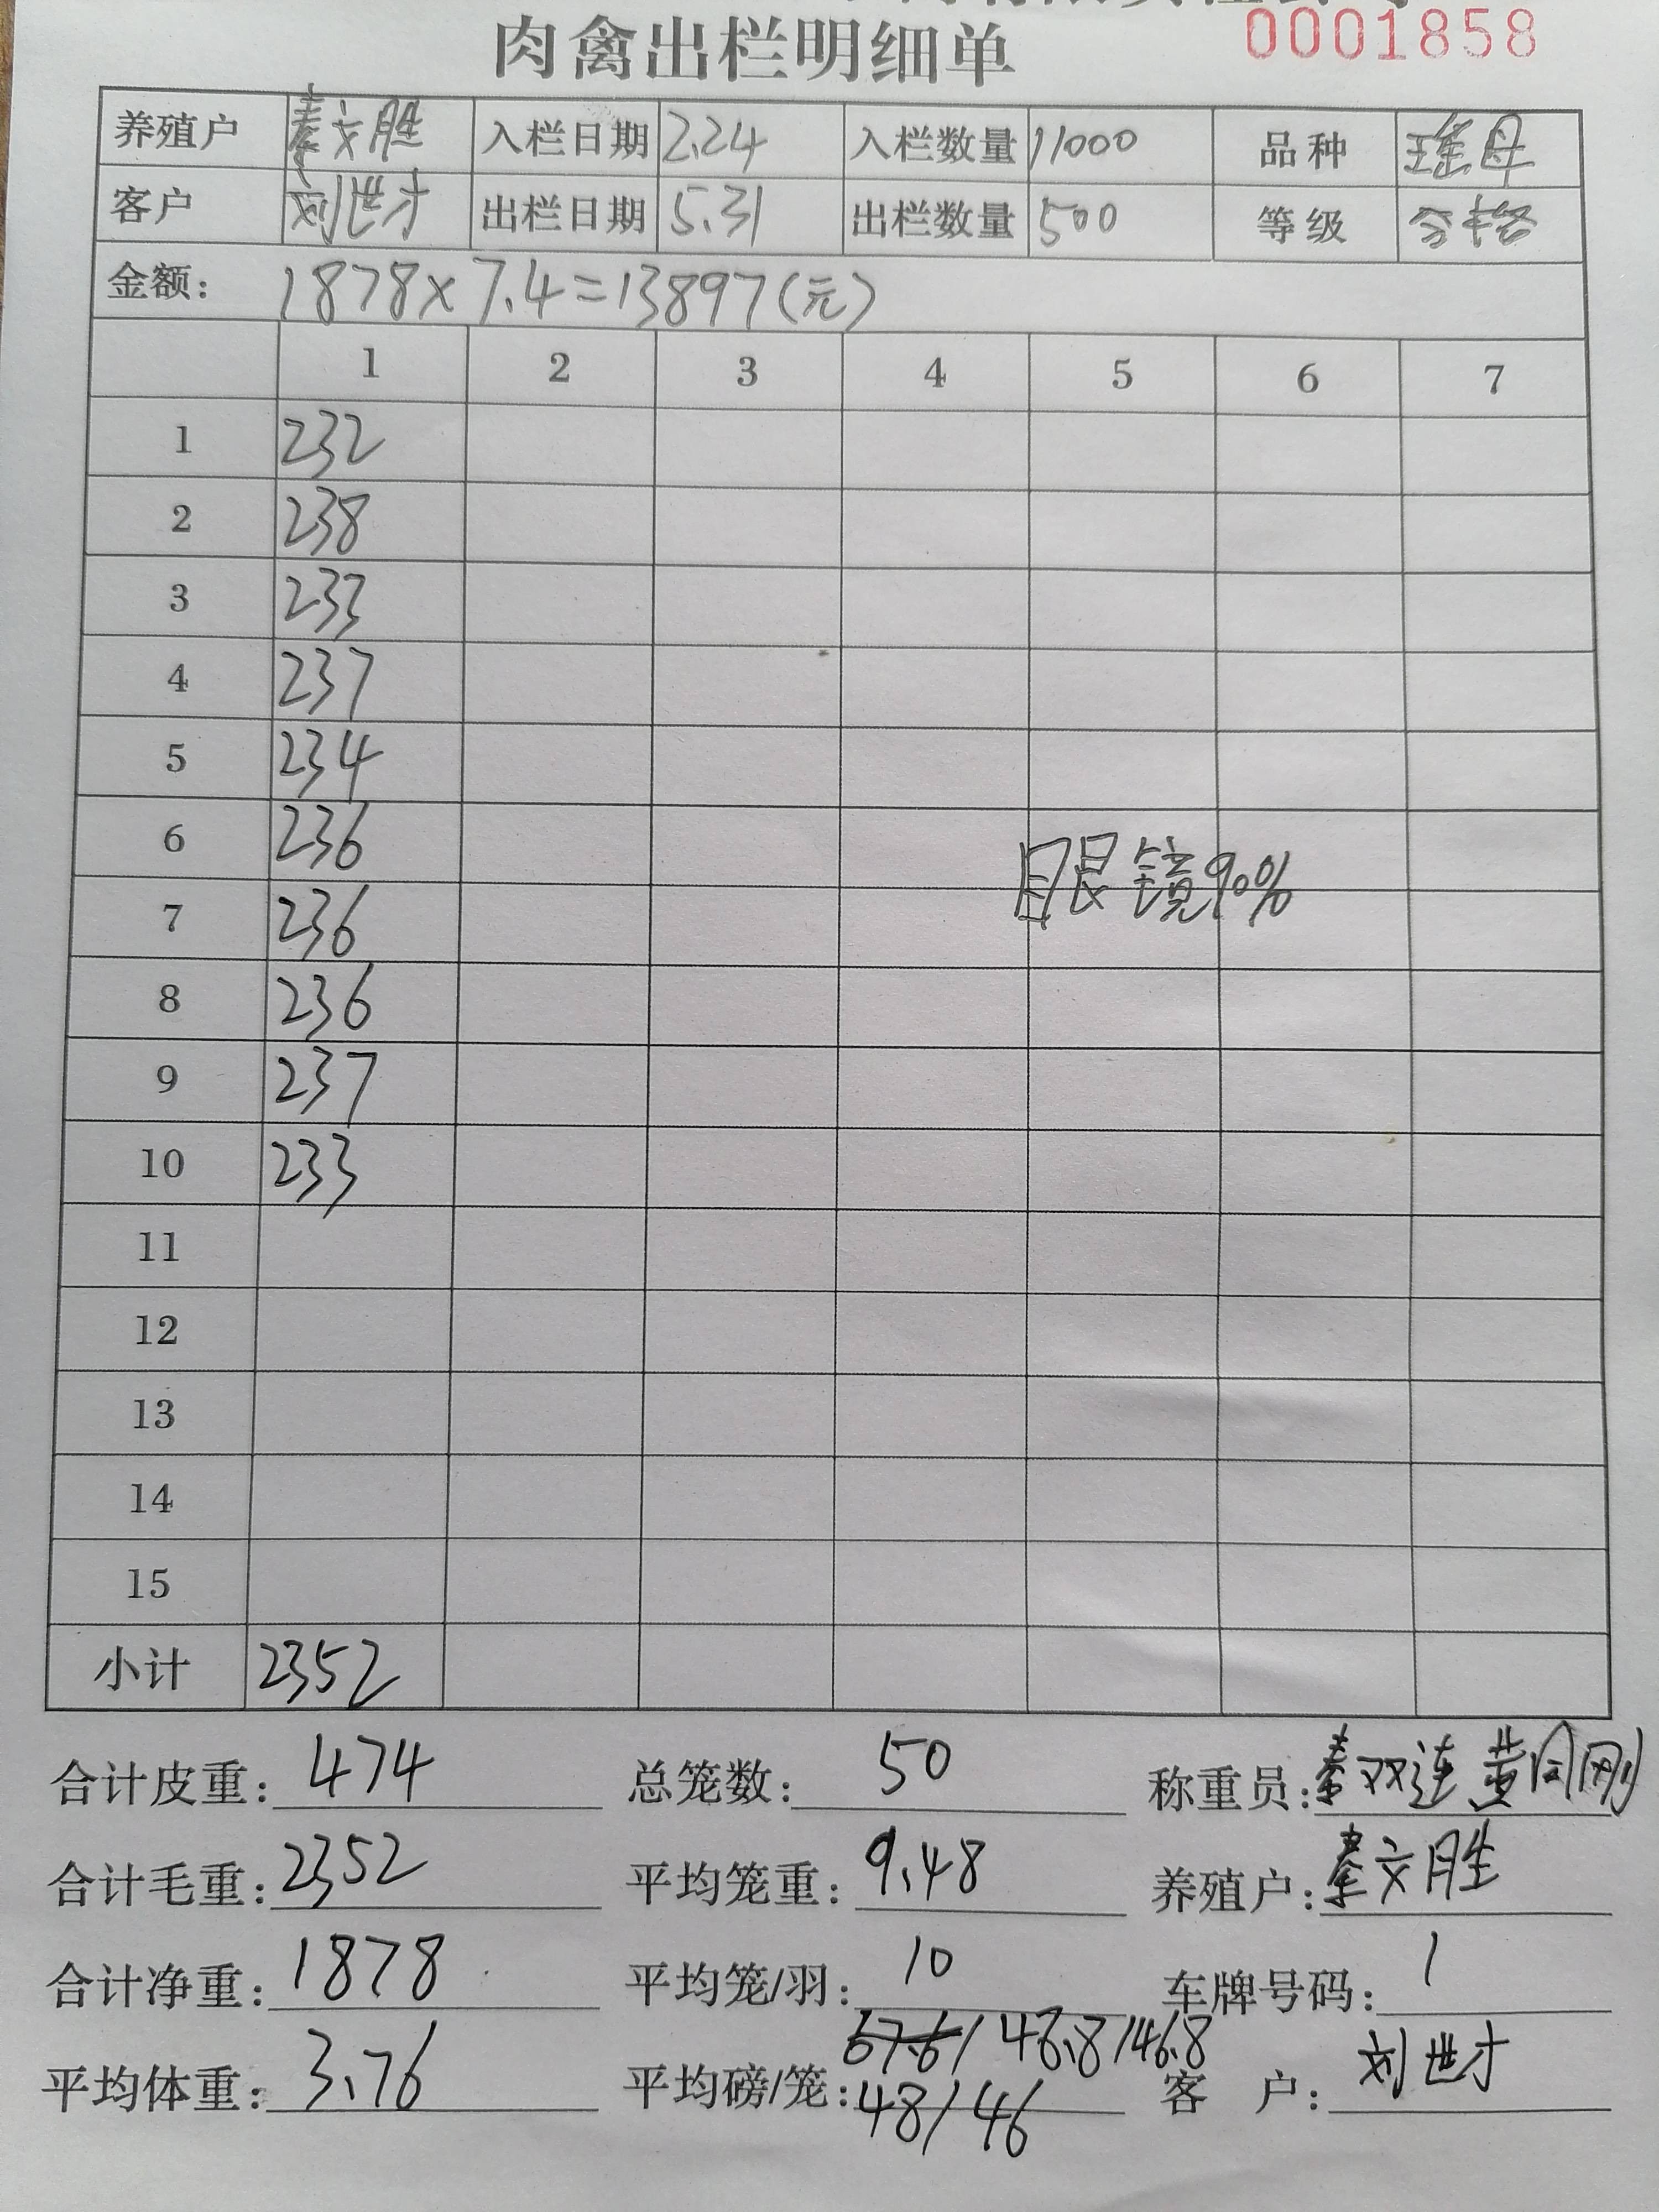 肉禽出栏明细单 0001858
养殖户 秦文胜 入栏日期 2.24 入栏数量 11000 品种 瑶母
客户 刘世才 出栏日期 5.31 出栏数量 500 等级 合格
金额: 1878×7.4=13897(元)
1 2 3 4 5 6 7
1 232
2 238
3 233
4 237
5 234
6 236
眼镜90%
7 236
8 236
9 237
10 233
11
12
13
14
15
小计 2352
合计皮重: 474 总笼数: 50 称重员: 秦双连 黄同刚
合计毛重: 2352 平均笼重: 9.48 养殖户: 秦文胜
合计净重: 1878 平均笼/羽: 10 车牌号码: 1
67.6/ 46.8/46.8
平均体重: 3.76 平均磅/笼: 48/46 客户: 刘世才